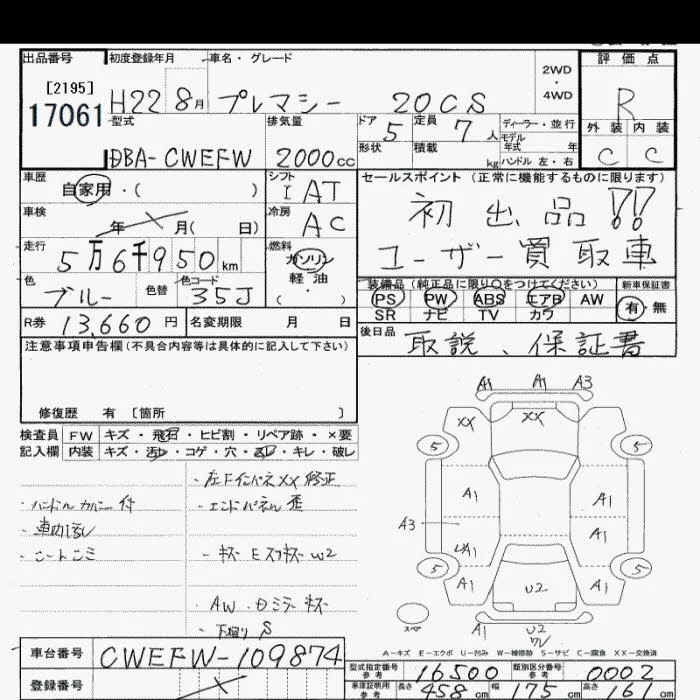 出品番号 初度登録年月 車名・グレード 2WD・4WD 評価点
[2195]
17061 H22 8月 プレマシー 20CS R
型式 排気量 ドア 5 定員 7人 ディーラー・並行 外装 内装
DBA-CWEFW 2000cc 形状 積載 kg モデル年式 年 ハンドル 左・右 C C
車歴 自家用・( ) シフト I AT セールスポイント (正常に機能するものに限ります)
車検 年 月( 日) 冷房 AC 初出品!!
走行 5万6千950km 燃料 ガソリン 軽・油 ( ) ユーザー買取車
色 ブルー 色替 色コード 35J 装備品(純正品に限り○をつけてください) 新車保証書
PS PW ABS エアB AW 有・無
SR ナビ TV カワ
R券 13,660円 名変期限 月 日 後日品 取説、保証書
注意事項申告欄(不具合内容等は具体的に記入して下さい)
修復歴 有 [箇所 ]
検査員 FW キズ・飛石・ヒビ割・リペア跡・×要
記入欄 内装 キズ・汚レ・コゲ・穴・スレ・キレ・破レ
・ハンドルカバー付
・車内汚し
・シートシミ
・左Fインパネ XX 修正
・エンドパネル歪
・キズ Eスリキズ W2
・AW・ミラーキズ
・下廻りS
A1 A1 A3
XX XX
5 5
A1 A1
A3 A1
UA1
5 5
A1 U2 A1
スペア A1 U2
W
A-キズ E-エクボ U-凹み W-補修跡 S-サビ C-腐食 XX-交換済
車台番号 CWEFW-109874
登録番号
型式指定番号 参考 16500 類別区分番号 参考 0002
車庫証明用 参考 長さ 458cm 幅 175cm 高さ 161cm